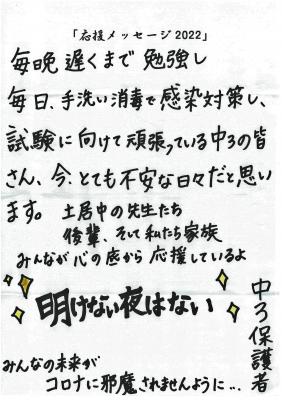 「応援メッセージ2022」
毎晩 遅くまで 勉強し
毎日、手洗い消毒で感染対策し、
試験に向けて頑張っている中3の皆
さん、今、とても不安な日々だと思い
ます。 土居中の先生たち
後輩、そして私たち家族
みんなが心の底から応援しているよ
明けない夜はない
中3保護者
みんなの未来が
コロナに邪魔されませんように…